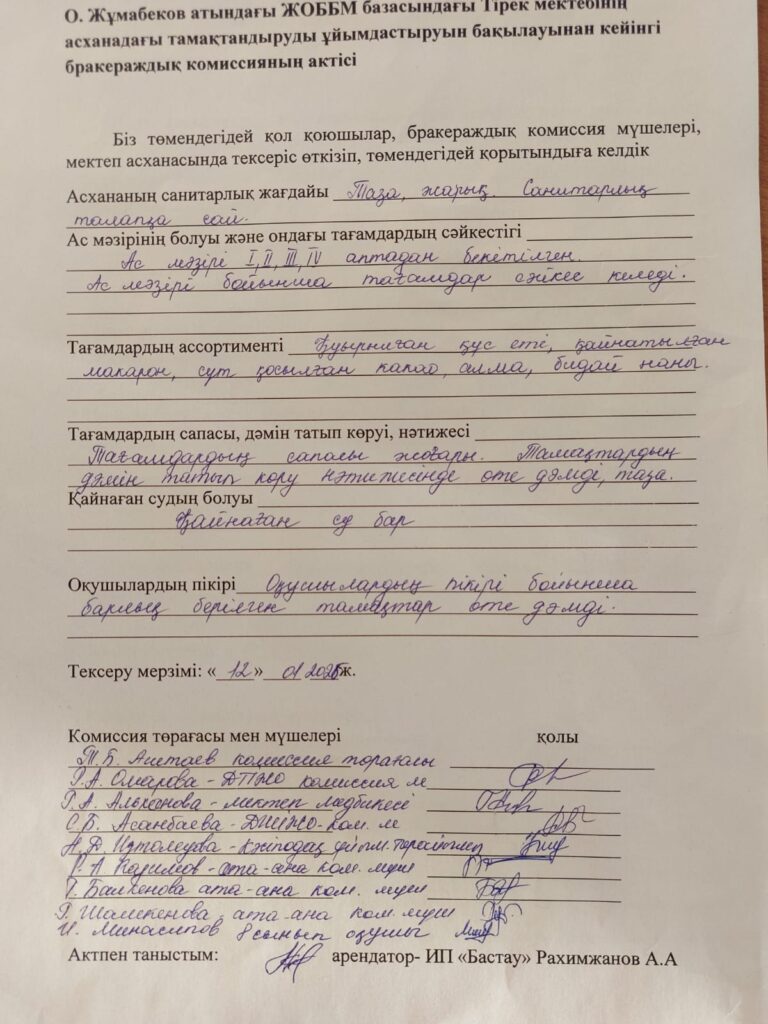 О. Жұмабеков атындағы ЖОББМ базасындағы Тірек мектебінің
асханадағы тамақтандыруды ұйымдастыруын бақылауынан кейінгі
бракераждық комиссияның актісі
Біз төмендегідей қол қоюшылар, бракераждық комиссия мүшелері,
мектеп асханасында тексеріс өткізіп, төмендегідей қорытындыға келдік
Асхананың санитарлық жағдайы Таза, жарық. Санитарлық
талапқа сай.
Ас мәзірінің болуы және ондағы тағамдардың сәйкестігі
Ас мәзірі I, II, III, IV аптадан бекетілген.
Ас мәзірі бойынша тағамдар сәйкес келеді.
Тағамдардың ассортименті Қуырылған құс еті, қайнатылған
макарон, сүт қосылған какао, алма, бидай наны.
Тағамдардың сапасы, дәмін татып көруі, нәтижесі
Тағамдардың сапасы жоғары. Тамақтардың
дәмін татып көру нәтижесінде өте дәмді, таза.
Қайнаған судың болуы
Қайнаған су бар
Оқушылардың пікірі Оқушылардың пікірі бойынша
барлық берілген тамақтар өте дәмді.
Тексеру мерзімі: «12» 01 2026ж.
Комиссия төрағасы мен мүшелері қолы
Т.Б. комиссия төрағасы
Г.А. Омарова - ДТІЖО комиссия м
Г.А. - мектеп медбикесі
С.Б. Асанбаева - ком. м
Н.Д. - кәсіподақ ұйым. төрайымы
Р.А - ата-ана ком. мүш
Г. Балкенова ата-ана ком. мүш
Г. Шамкенова ата-ана ком. мүш
И. Минасипов 8 сынып оқушы
Актпен таныстым: арендатор- ИП «Бастау» Рахимжанов А.А